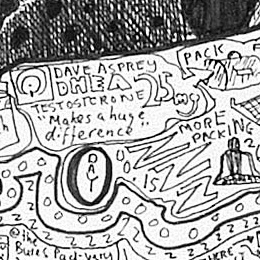 DAVE ASPREY
DHEA 25 mg
TESTOSTERONE
"Makes a huge
difference"
PACK
MORE
PACKING
DAY
IS
@the
Bures Pad-very